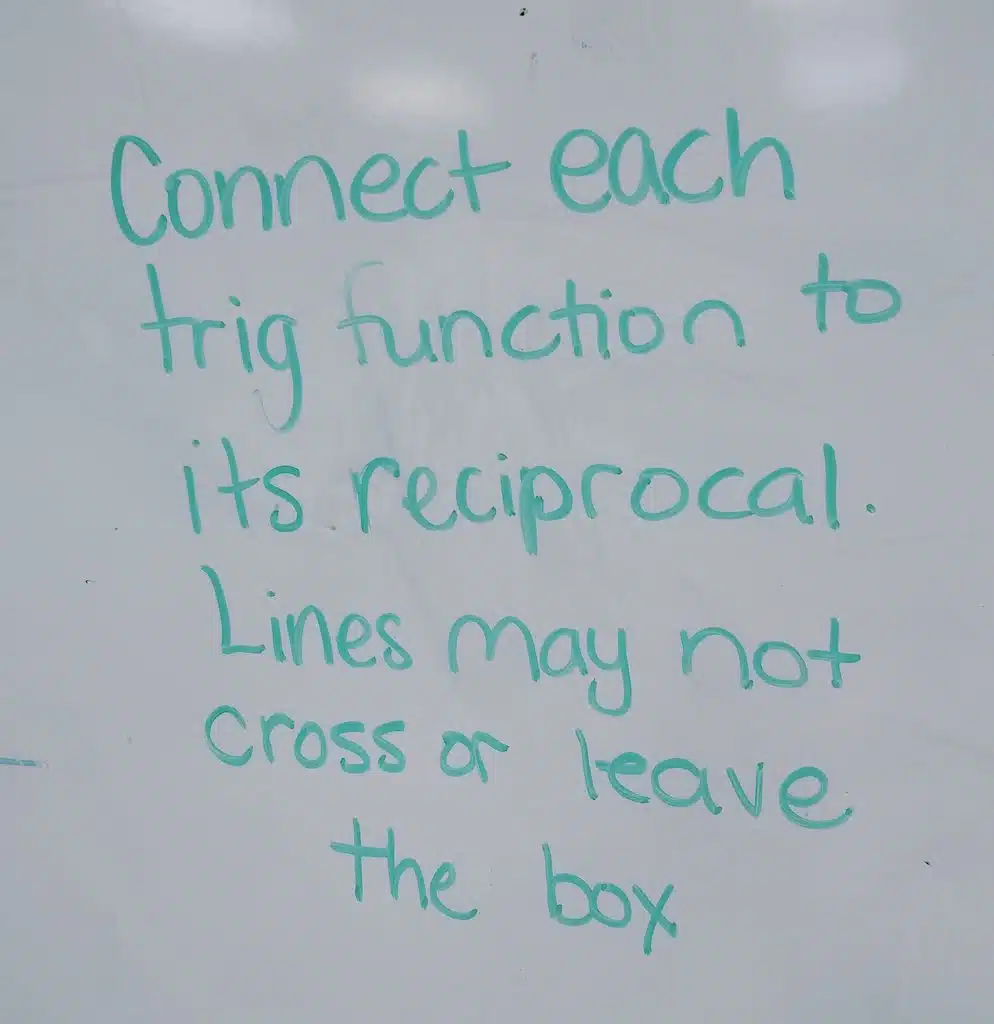 Connect each
trig function to
its reciprocal.
Lines may not
cross or leave
the box